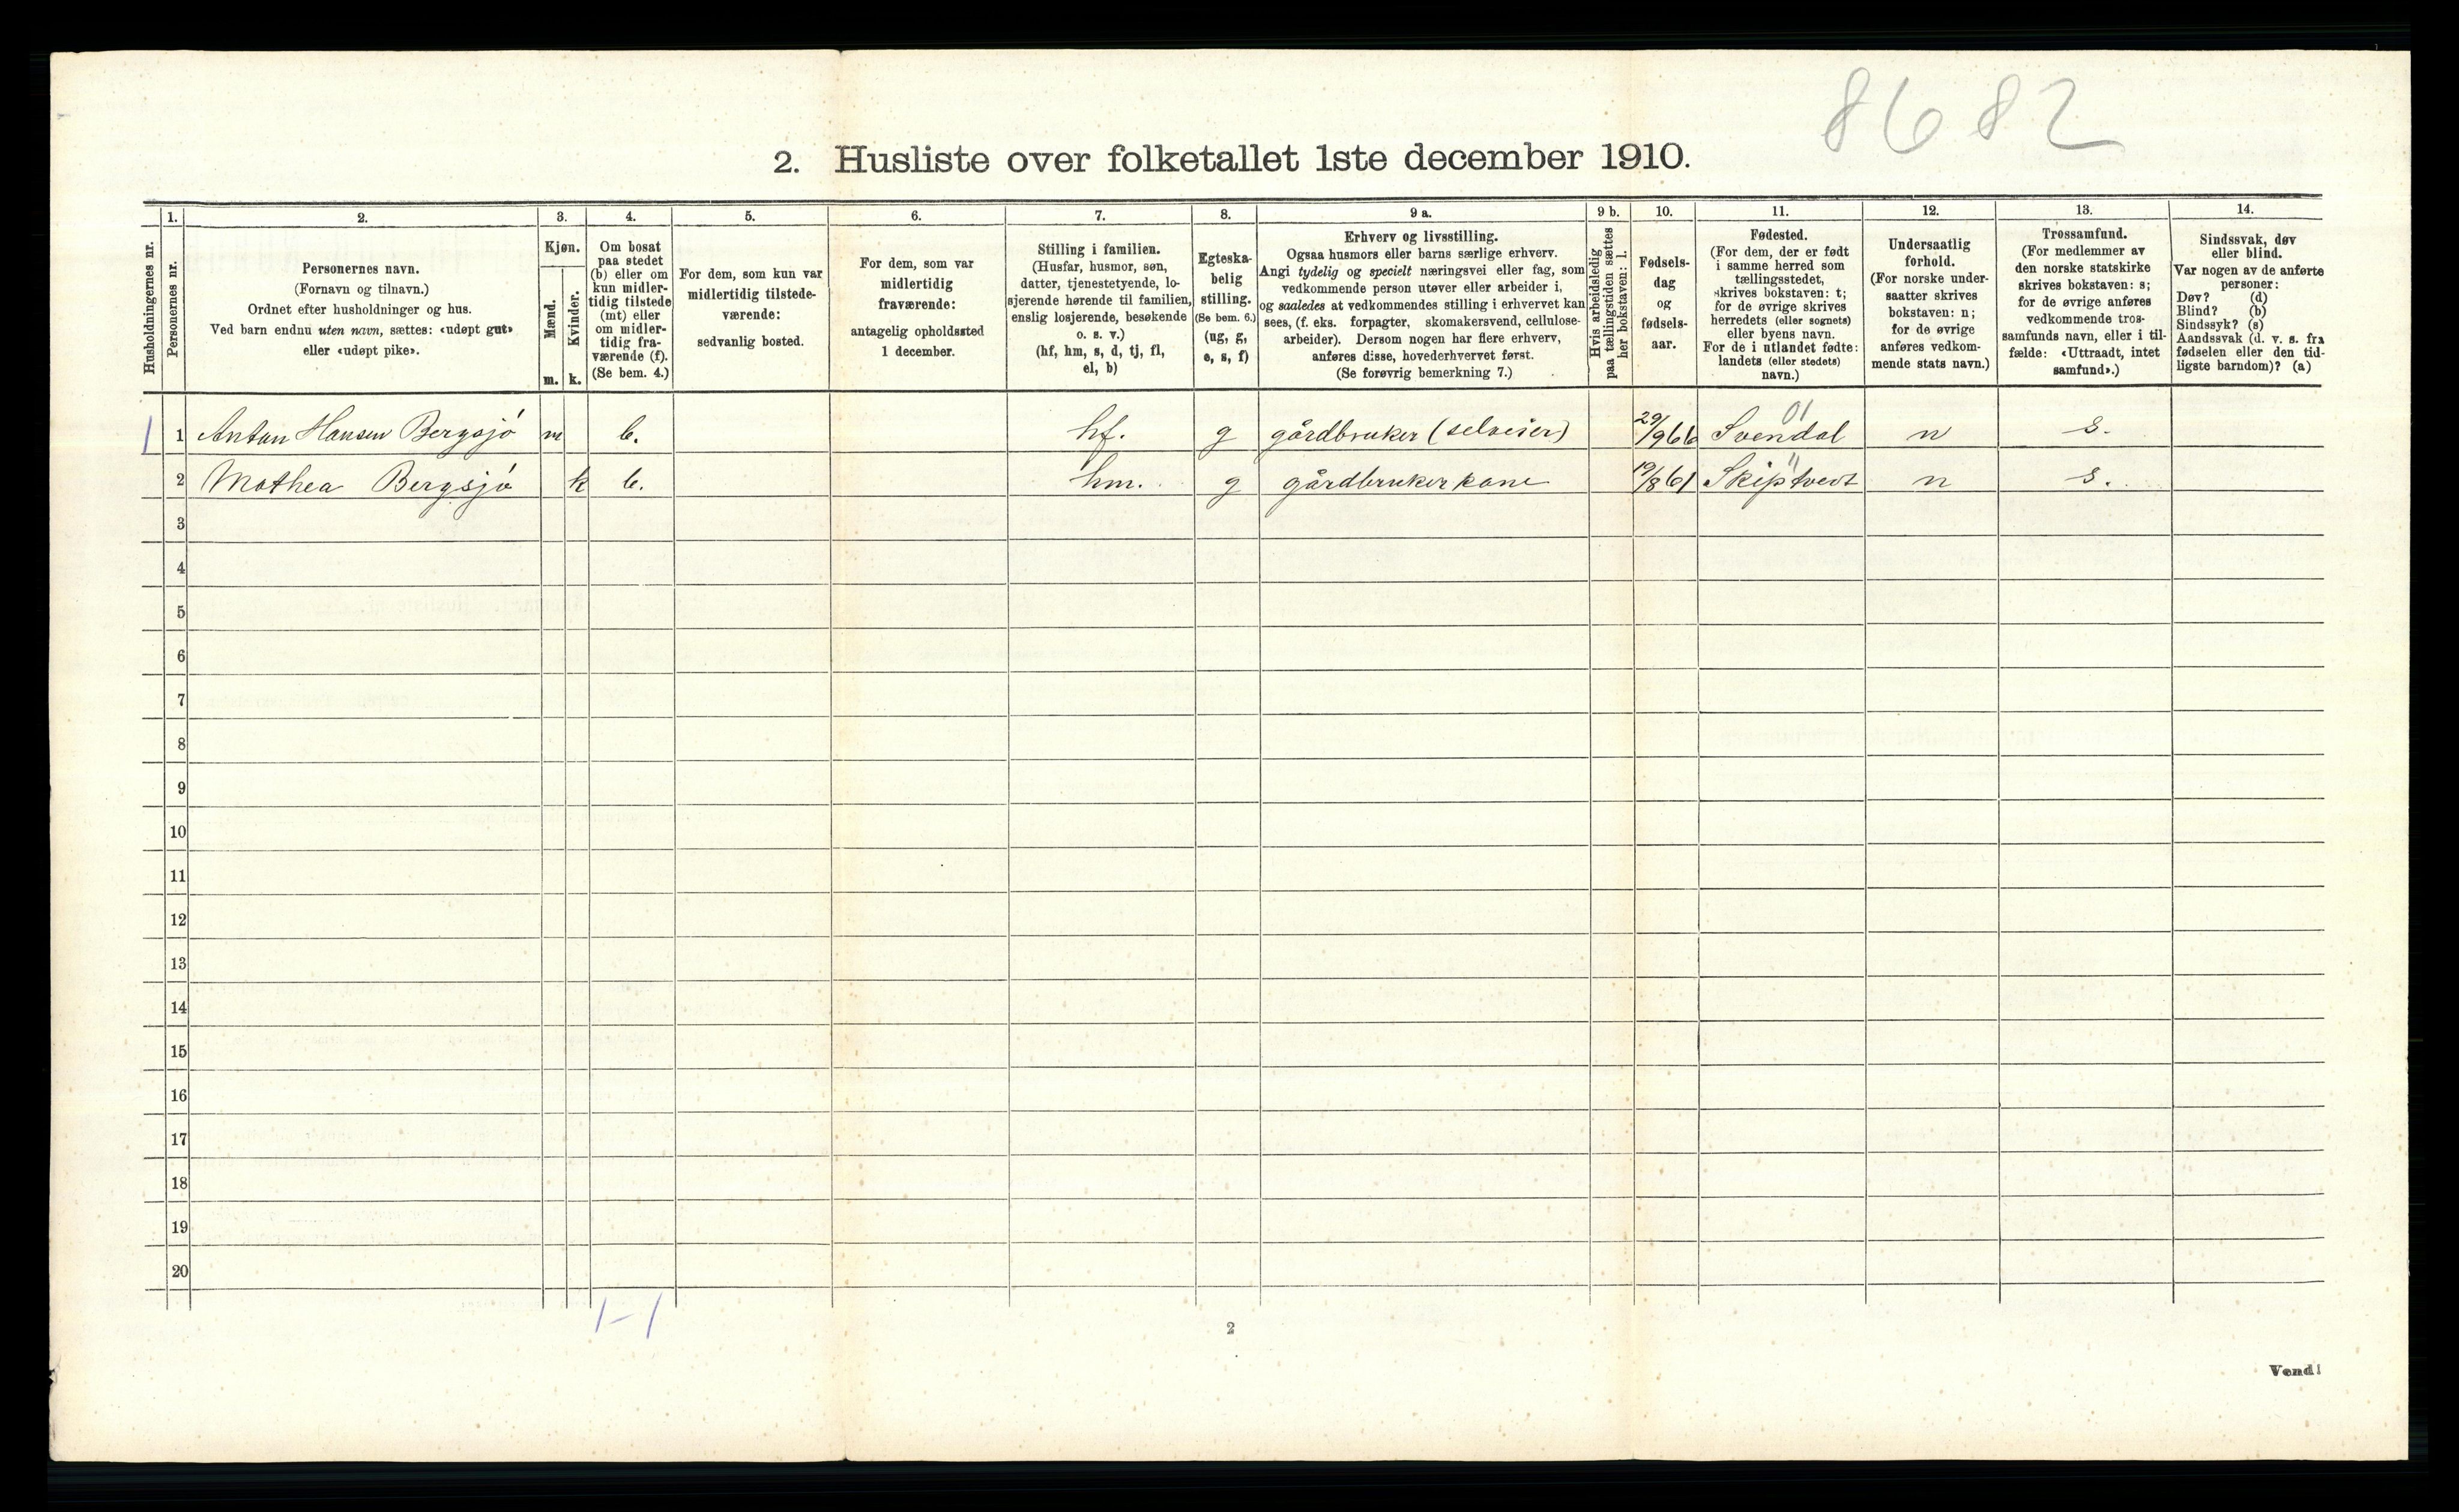 8682
2. Husliste over folketallet 1ste december 1910.
Husholdningernes nr.
1.
Personernes nr.
2.
Personernes navn.
(Fornavn og tilnavn.)
Ordnet efter husholdninger og hus.
Ved barn endnu uten navn, sættes: «udøpt gut»
eller «udøpt pike».
3.
Kjøn.
Mænd.
Kvinder.
m. k.
4.
Om bosat
paa stedet
(b) eller om
kun midler-
tidig tilstede
(mt) eller
om midler-
tidig fra-
værende (f).
(Se bem. 4.)
5.
For dem, som kun var
midlertidig tilstede-
værende:
sedvanlig bosted.
6.
For dem, som var
midlertidig
fraværende:
antagelig opholdssted
1 december.
7.
Stilling i familien.
(Husfar, husmor, søn,
datter, tjenestetyende, lo-
sjerende hørende til familien,
enslig losjerende, besøkende
o. s. v.)
(hf, hm, s, d, tj, fl,
el, b)
8.
Egteska-
belig
stilling.
(Se bem. 6.)
(ug, g,
e, s, f)
9 a.
Erhverv og livsstilling.
Ogsaa husmors eller barns særlige erhverv.
Angi tydelig og specielt næringsvei eller fag, som
vedkommende person utøver eller arbeider i,
og saaledes at vedkommendes stilling i erhvervet kan
sees, (f. eks. forpagter, skomakersvend, cellulose-
arbeider). Dersom nogen har flere erhverv,
anføres disse, hovederhvervet først.
(Se forøvrig bemerkning 7.)
9 b.
Hvis arbeidsledig
paa tællingstiden sættes
her bokstaven: l.
10.
Fødsels-
dag
og
fødsels-
aar.
11.
Fødested.
(For dem, der er født
i samme herred som
tællingsstedet,
skrives bokstaven: t;
for de øvrige skrives
herredets (eller sognets)
eller byens navn.
For de i utlandet fødte:
landets (eller stedets)
navn.)
12.
Undersaatlig
forhold.
(For norske under-
saatter skrives
bokstaven: n;
for de øvrige
anføres vedkom-
mende stats navn.)
13.
Trossamfund.
(For medlemmer av
den norske statskirke
skrives bokstaven: s;
for de øvrige anføres
vedkommende tros-
samfunds navn, eller i til-
fælde: «Uttraadt, intet
samfund».)
14.
Sindssvak, døv
eller blind.
Var nogen av de anførte
personer:
Døv? (d)
Blind? (b)
Sindssyk? (s)
Aandssvak (d. v. s. fra
fødselen eller den tid-
ligste barndom)? (a)
01
1 1 Anton Hansen Bergsjø m b. hf. g gårdbruker (selveier) 29/9 66 Svendal n s.
"
2 Mathea Bergsjø k b. hm. g gårdbrukerkone 19/8 61 Skiptvedt n s.
3
4
5
6
7
8
9
10
11
12
13
14
15
16
17
18
19
20
1-1
2
Vend!